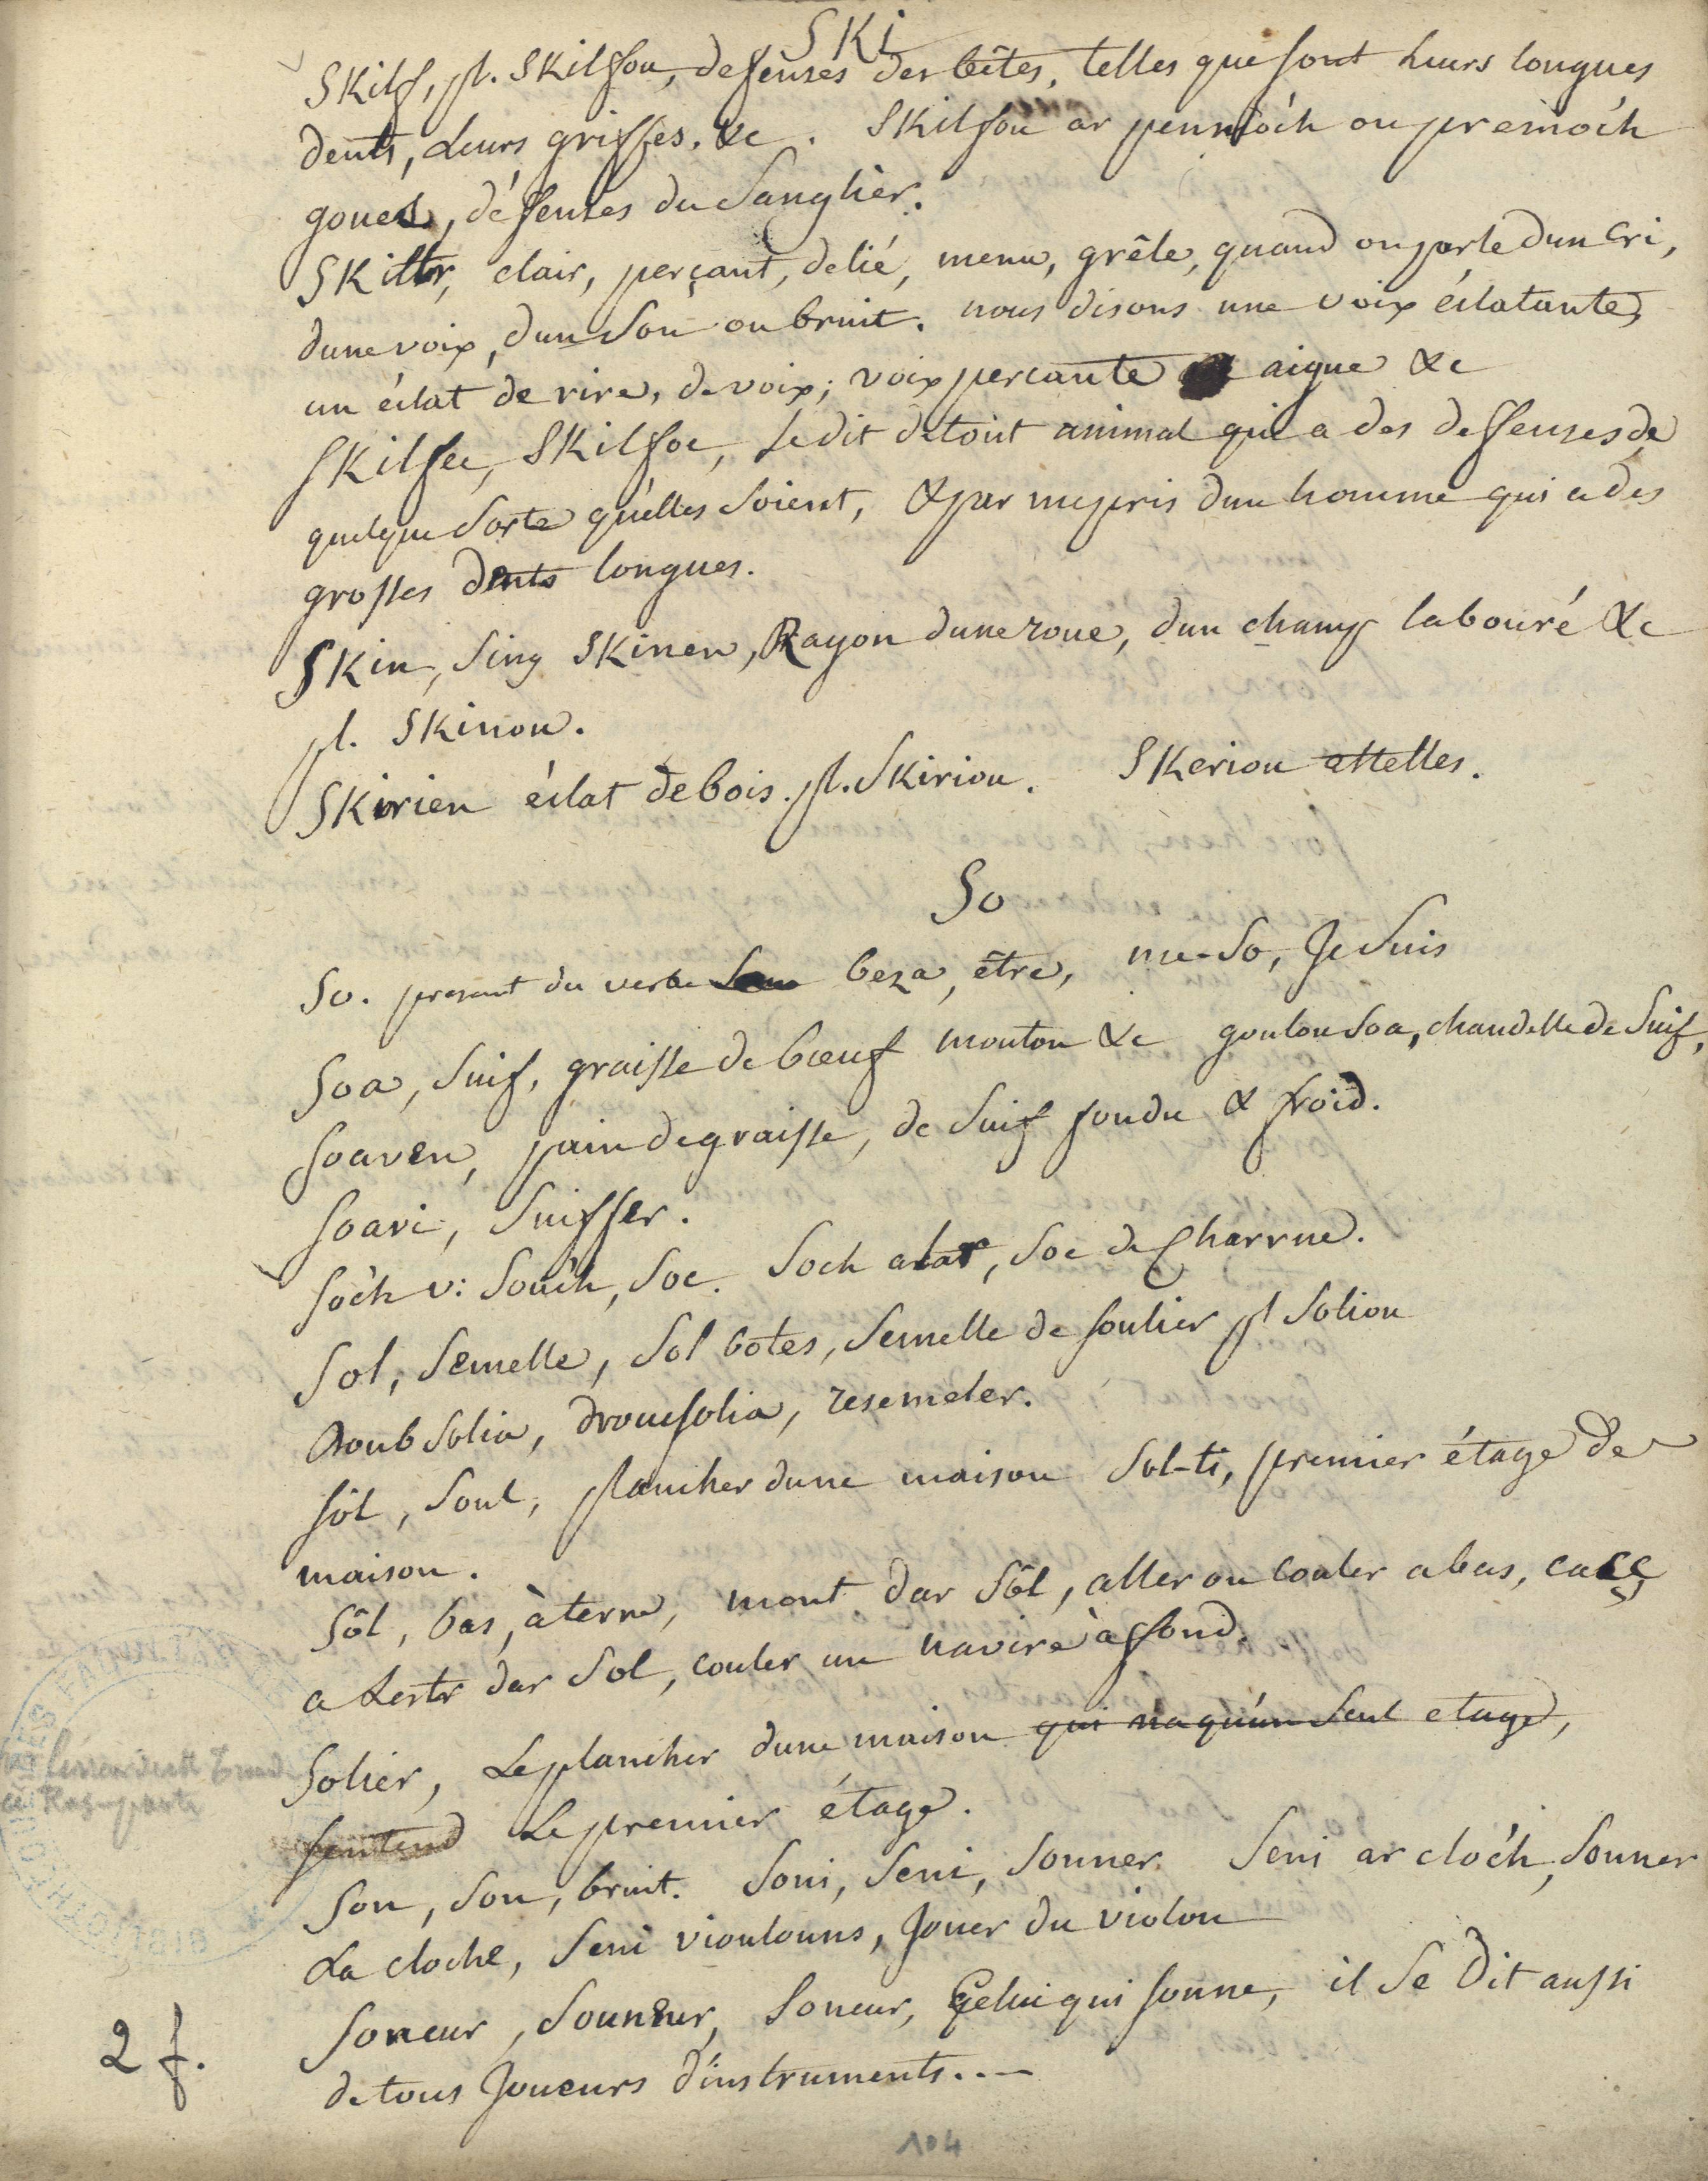 SKi
SKilf, pl. SKilfou, defenses des bêtes, telles que sont leurs longues
dents, Leurs griffes. &c. SKilfou ar pennfôc'h ou premôc'h
gouez, défenses du Sanglièr.
SKiltr, clair, perçant, delié, menu, grêle, quand on parle dun cri,
dune voix, dun Son ou bruit. nous disons une voix éclatante,
un éclat de rire, de voix; voix percante aigue &c
SKilfec, SKilfoc, Se dit de tout animal qui a des deffenses de
quelque Sorte qu'elles Soient, & par mepris dun homme qui a des
grosses dents longues.
SKin, Sing SKinen, Rayon dune roue, dun champ labouré &c
pl. SKinou.
SKirien éclat de bois. pl. SKiriou. SKeriou attelles.
So
So. present du verbe beza, être, me-So, Je Suis
Soa, Suif, graisse de bœuf mouton &c goulou Soa, chandelle de Suif,
Soaven, pain de graisse, de Suif fondu & froid.
Soavi, Suiffer.
Sôc'h v: Souc'h, Soc. Soch alar, Soc de Charrue.
Sol, Semelle, Sol botes, Semelle de soulier pl Soliou
Doubsolia, drouesolia, resemeler.
Sôl, Soul, plancher dune maison Sol-ti, premier étage de
maison.
Sôl, bas, à terre, mont dar Sôl, aller ou couler abas, cacc
a Lestr dar Sol, couler un navire à fond.
Solier, Le plancher dune maison qui na qu'un Seul etage,
sentend Le premier étage.
Son, Son, bruit. Soni, Seni, Sonner. Seni ar clôc'h, Sonner
La cloche, Seni vioulouns, Jouer du violon
Soneur, Souneur, Soneur, Celui qui sonne, il Se Dit aussi
de tous Joueurs d'instruments. . —
2 f.
104